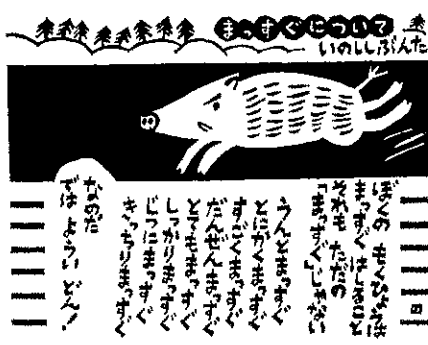 まっすぐについて
いのししぶんた
ぼくの もくひょうは
まっすぐ はしること
それも ただの
「まっすぐ」じゃない
うんとまっすぐ
とにかくまっすぐ
すごくまっすぐ
だんぜんまっすぐ
とてもまっすぐ
しっかりまっすぐ
じつにまっすぐ
きっちりまっすぐ
なのだ
では ようい どん!